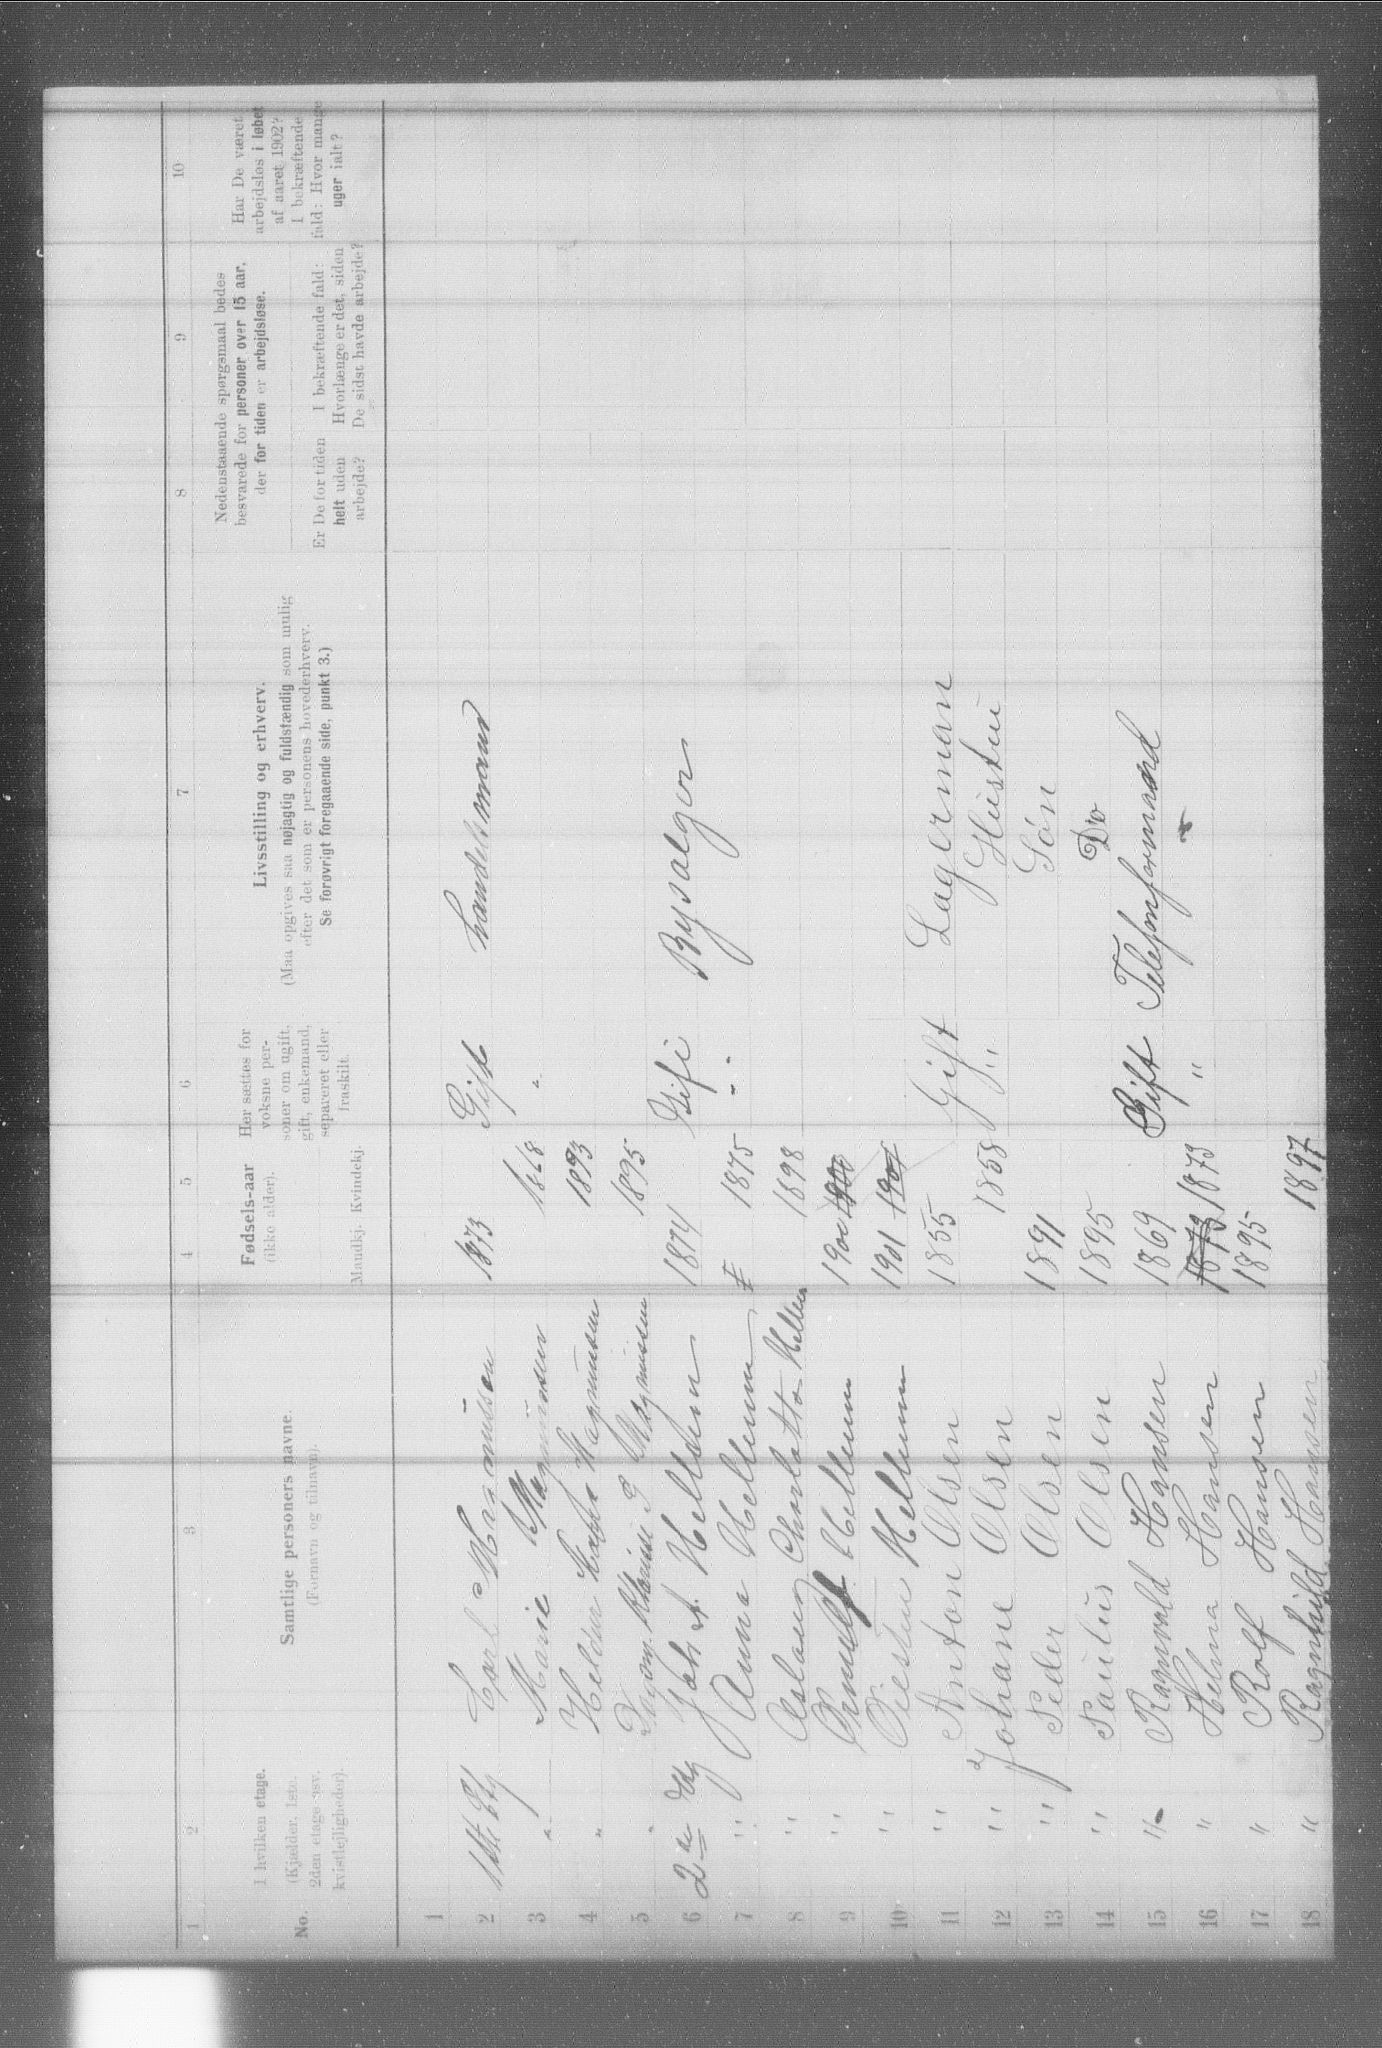 1 2 3 4 5 6 7 8 9 10
No.
I hvilken etage.
(Kjælder, 1ste,
2den etage osv.
kvistlejligheder).
Samtlige personers navne.
(Fornavn og tilnavn).
Fødsels-aar
(ikke alder).
Mandkj. Kvindekj.
Her sættes for
voksne per-
soner om ugift,
gift, enkemand,
separeret eller
fraskilt.
Livsstilling og erhverv.
(Maa opgives saa nøjagtig og fuldstændig som mulig
efter det som er personens hovederhverv.
Se forøvrigt foregaaende side, punkt 3.)
Nedenstaaende spørgsmaal bedes
besvarede for personer over 15 aar,
der for tiden er arbejdsløse.
Er De for tiden
helt uden
arbejde?
I bekræftende fald:
Hvorlænge er det, siden
De sidst havde arbejde?
Har De været
arbejdsløs i løbet
af aaret 1902?
I bekræftende
fald: Hvor mange
uger ialt?
1
2 1ste Etg Carl Magnussen 1873 Gift handelsmand
3 " Marie Magnussen 1868 "
4 " Magnussen 1893
5 " Magnussen 1895
6 2de Etg Joh. A. Hellum 1874 Gift Bysalger
7 " Anna Hellum 1875 "
8 " Aslaug Charlotte Hellum 1898
9 " Hellum 1900 1900
10 " Hellum 1901 1901
11 " Anton Olsen 1855 Gift Lagerman
12 " Johane Olsen 1858 " Hustru
13 " Peder Olsen 1891 Søn
14 " Paulus Olsen 1895 Do
15 " Ragnvald Hansen 1869 Gift Telefonformand
16 " Helma Hansen 1873 1873 "
17 " Rolf Hansen 1895
18 " Ragnhild Hansen 1897